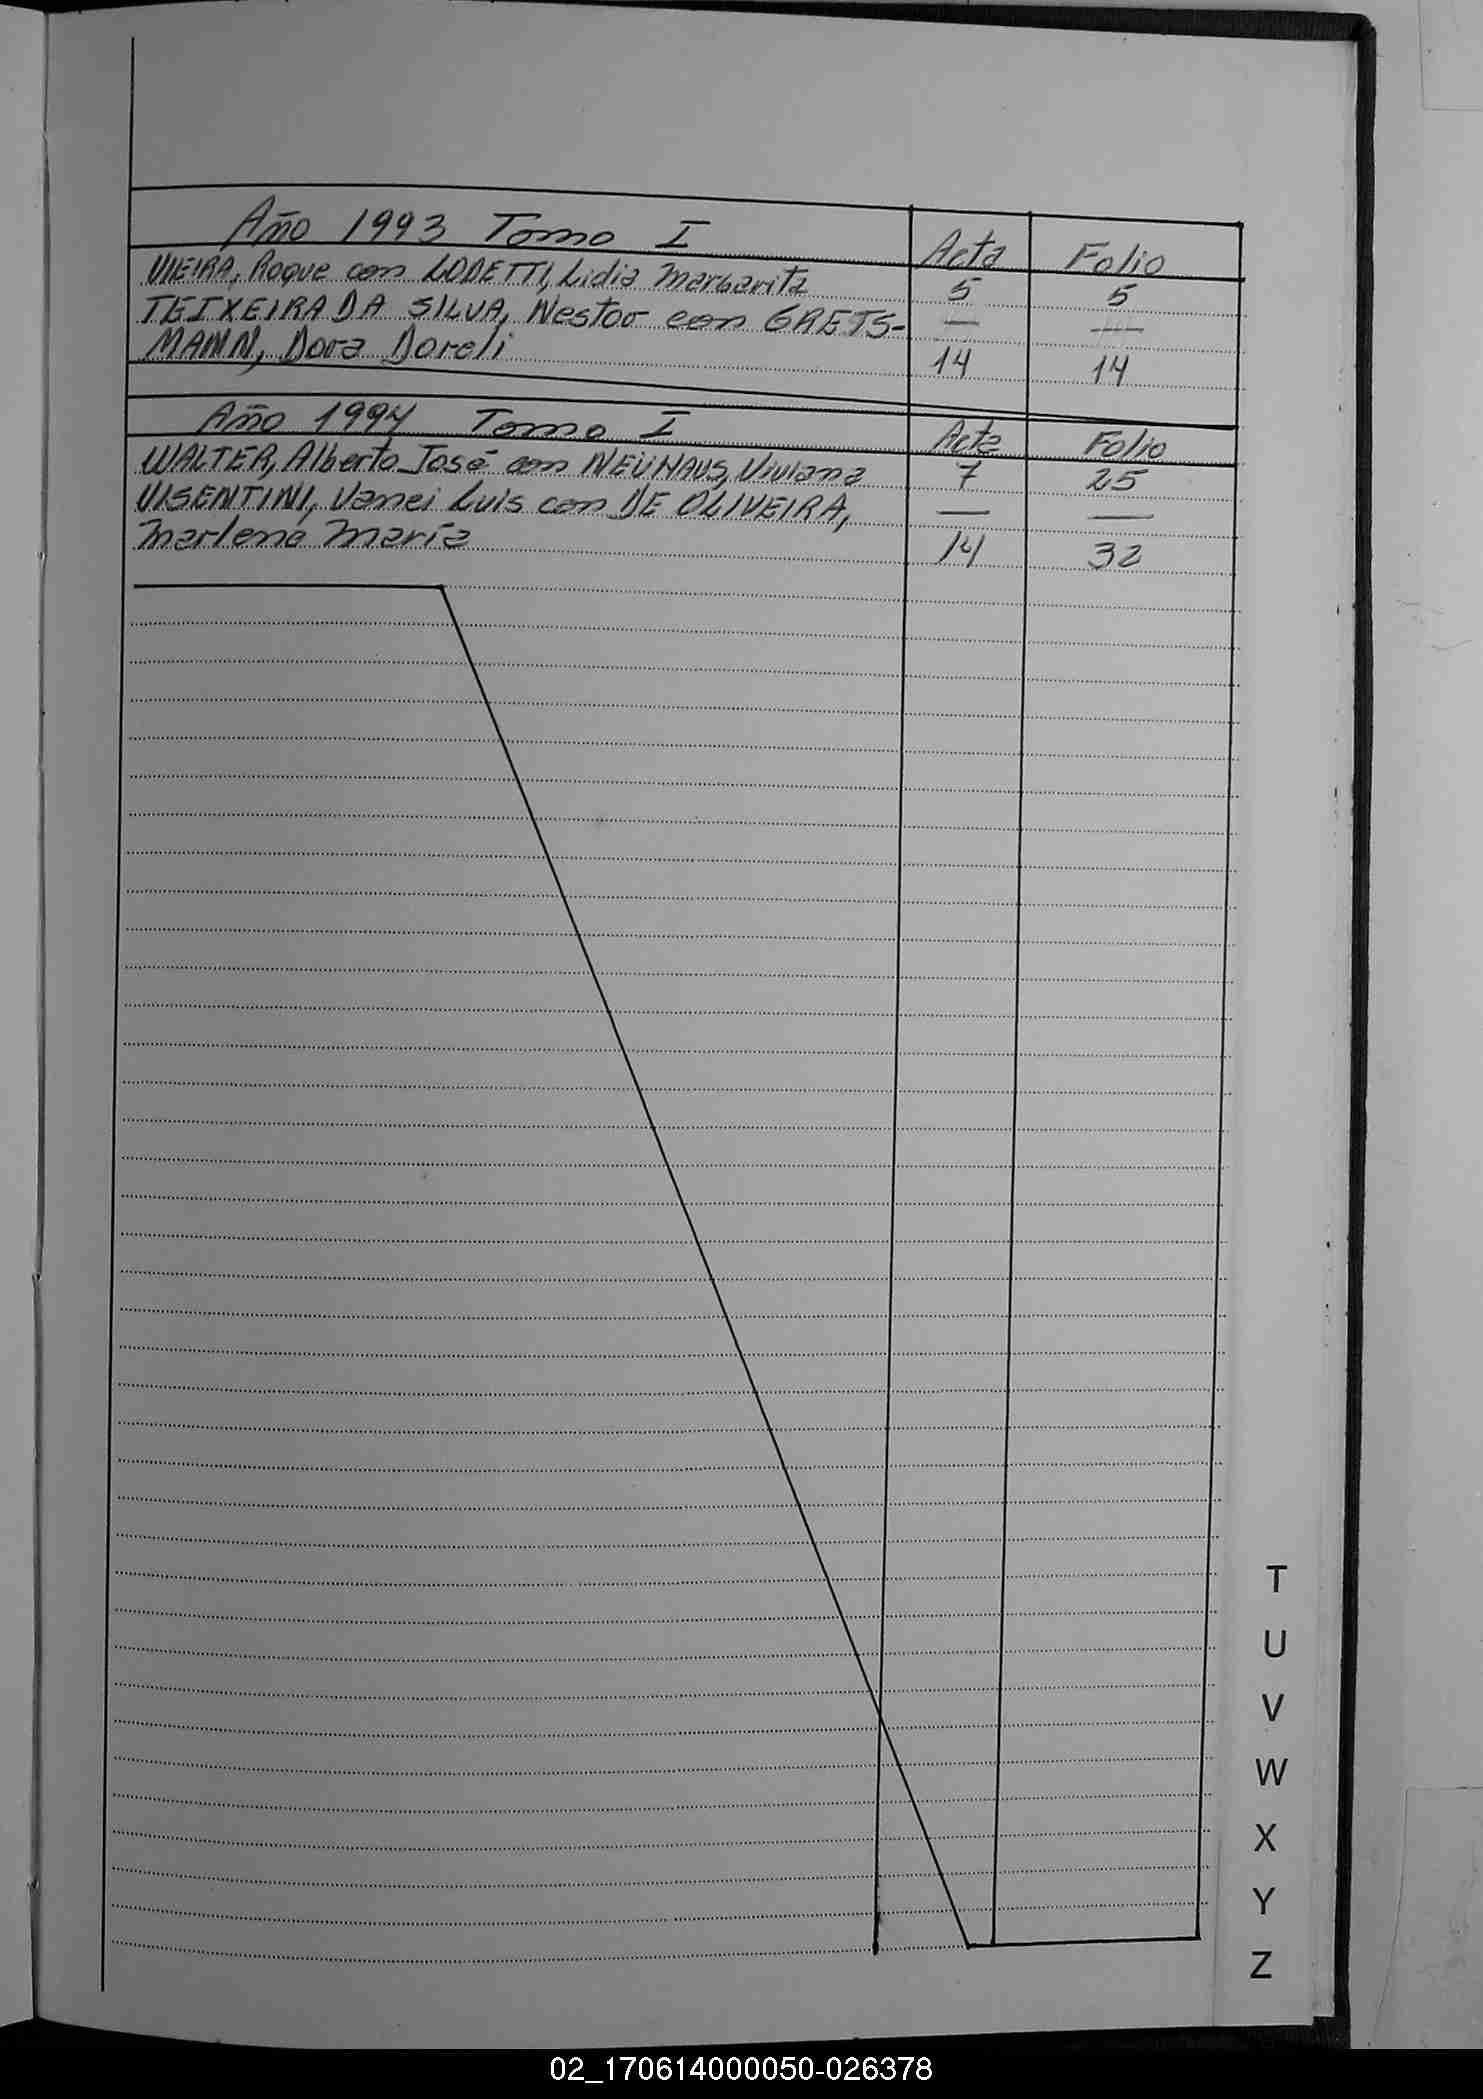 Año 1993 Tomo I Acta Folio
VIEIRA, Roque con LODETTI, Lidia Margarita 5 5
TEIXEIRA DA SILVA, Nestor con GRETS- — —
MANN, Dora Doreli 14 14
Año 1994 Tomo I Acta Folio
WALTER, Alberto José con NEUHAUS, Viviana 7 25
VISENTINI, Vanei Luis con DE OLIVEIRA, — —
Marlene María 14 32
T
U
V
W
X
Y
Z
02_170614000050-026378